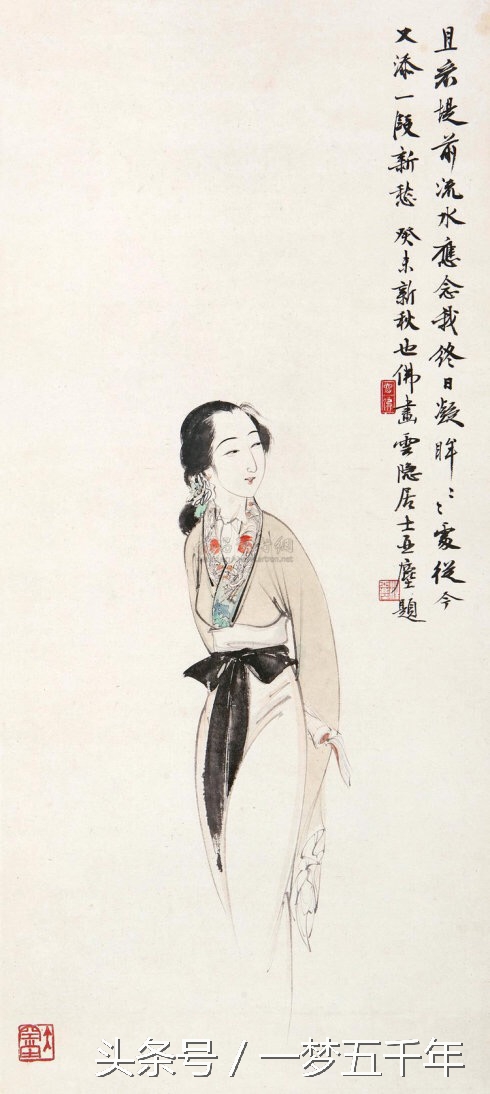 且堤前流水應念我終日凝眸〻〻處從今
又添一段新愁 癸未新秋也佛畫雲隐居士亞塵題
头条号 / 一梦五千年